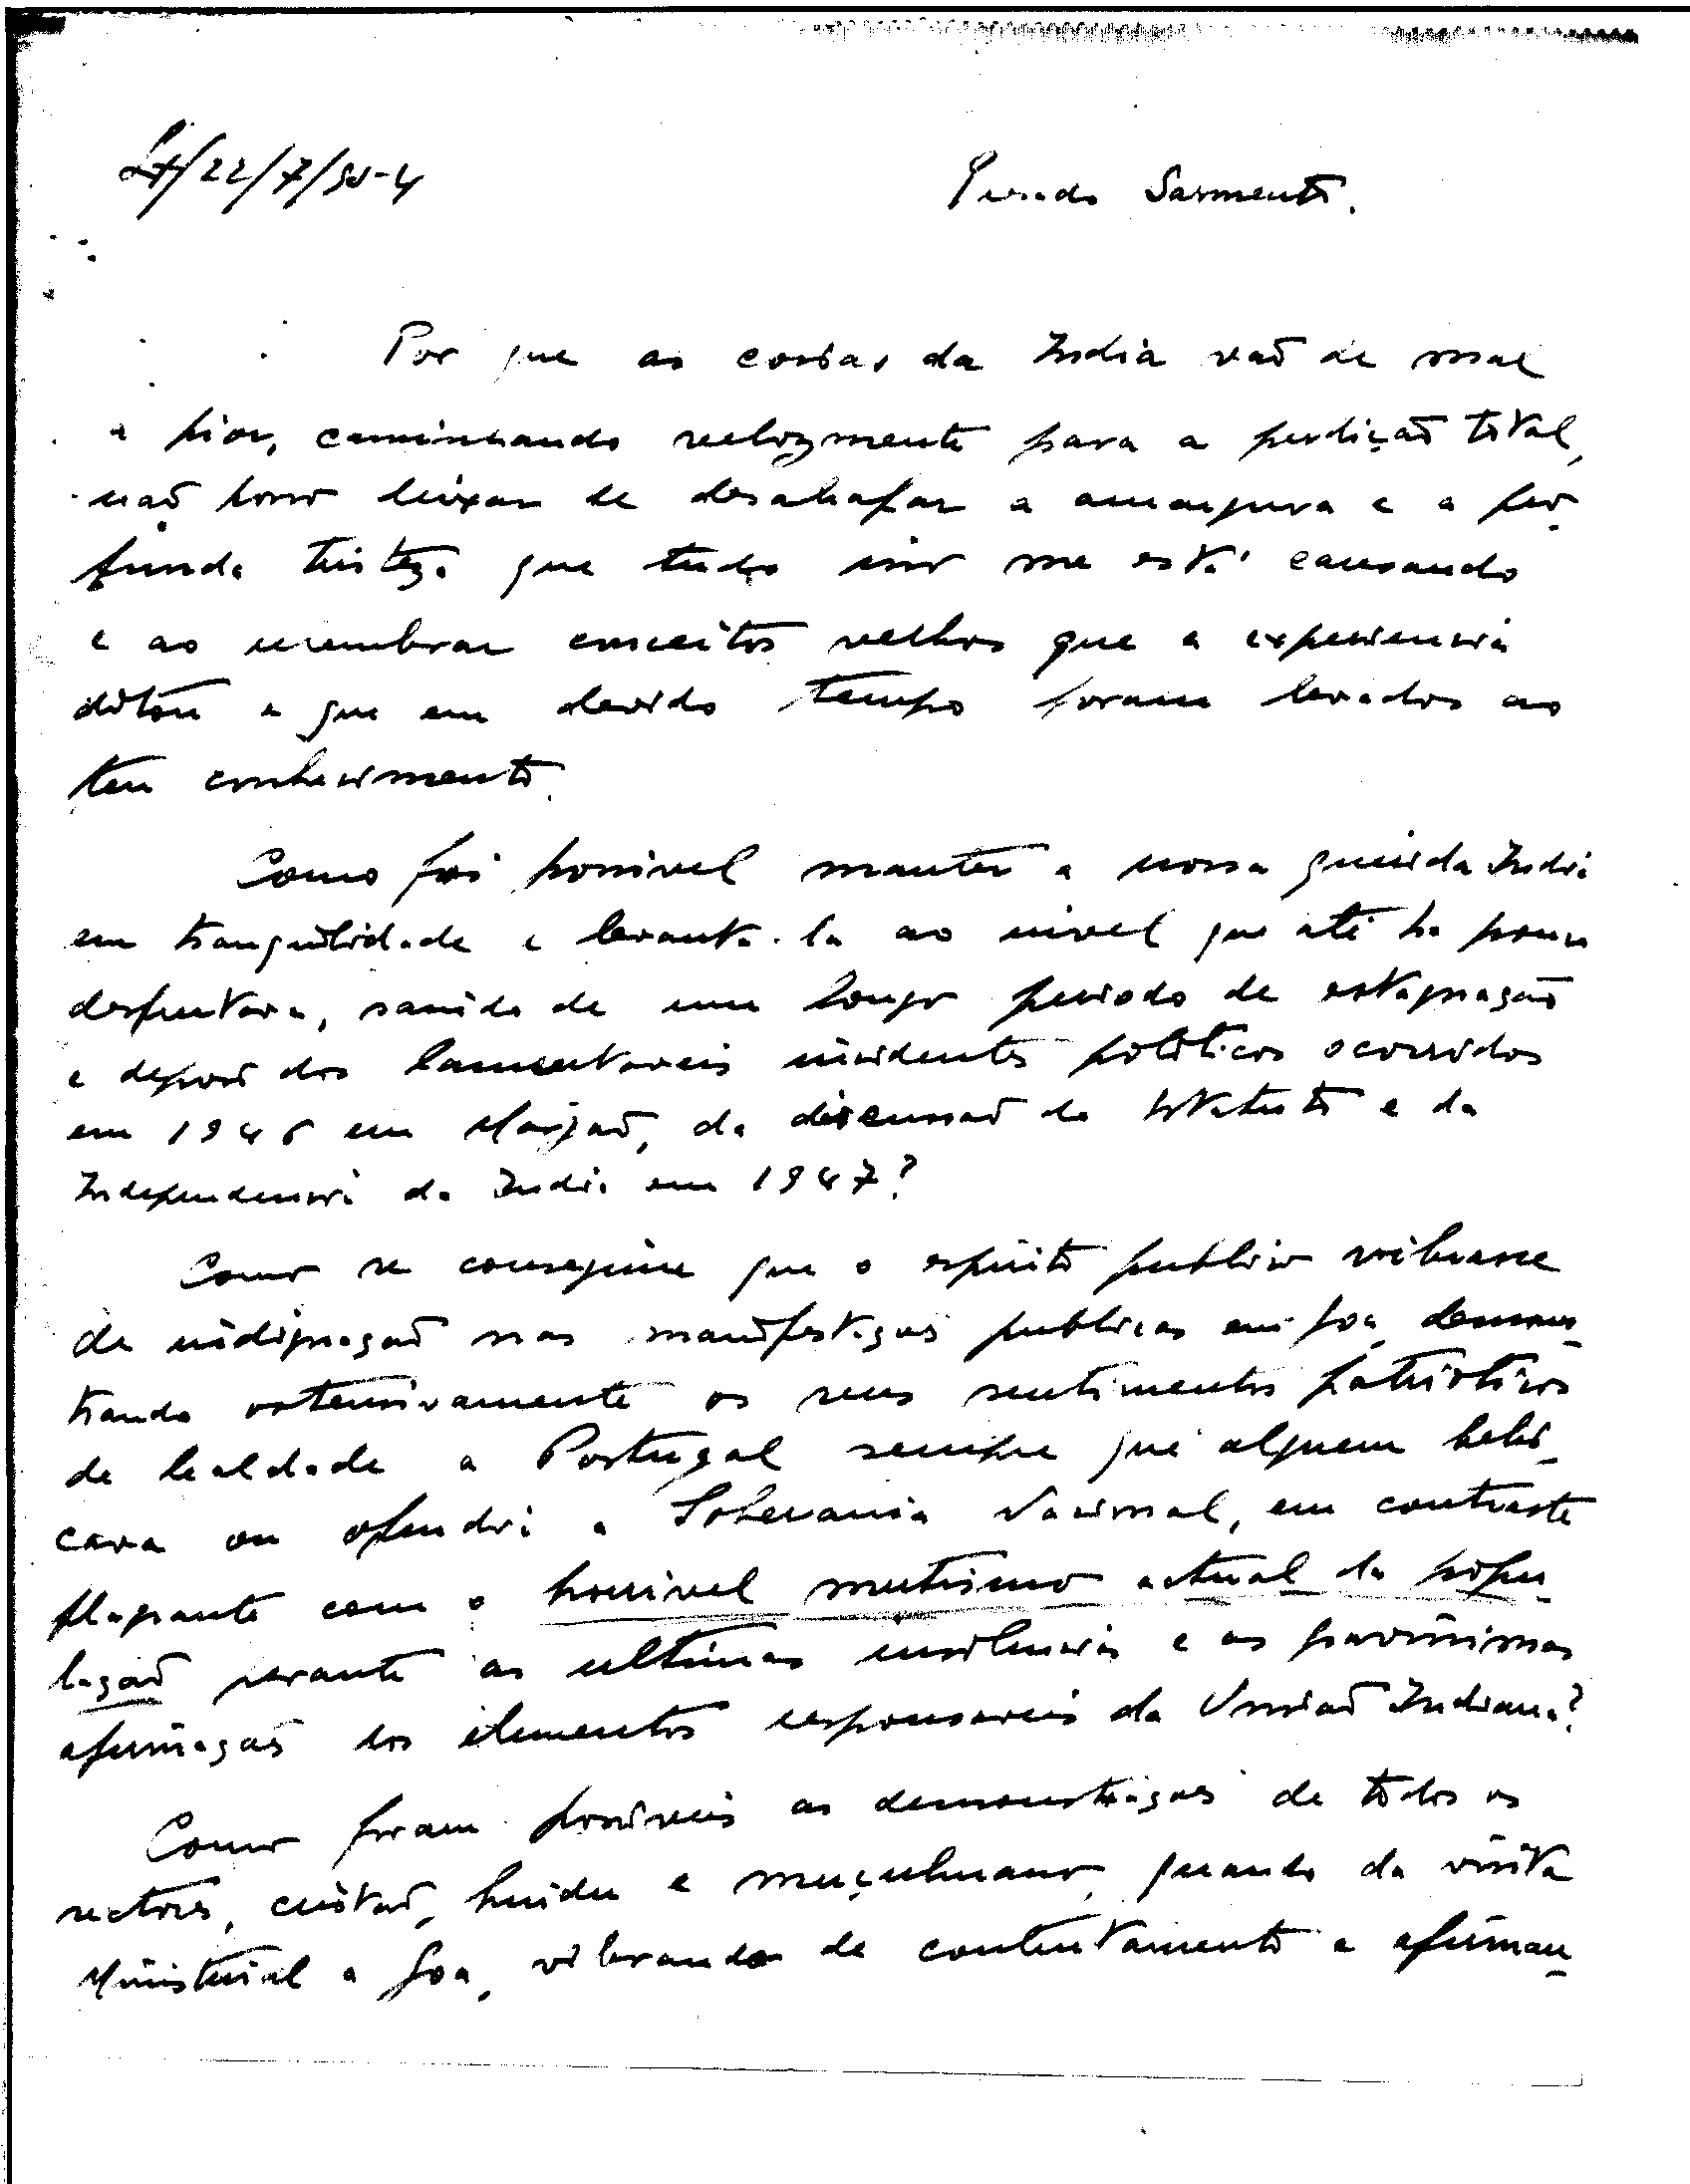 Lx/22/7/50-4
Querido Sarmento.
Por que as coisas da India vaõ de mal
a pior, caminhando velozmente para a perdiçaõ total,
naõ posso deixar de desabafar a amargura e a pro-
funda tristeza que tudo isso me está causando
e ao relembrar conceitos velhos que a experiencia
ditou e que em devido tempo foram levados ao
teu conhecimento.
Como foi possivel manter a nossa querida India
em tranquilidade e levanta-la ao nivel que até ha pouco
desfrutava, saida de um longo periodo de estagnaçaõ
e depois dos lamentaveis incidentes politicos ocorridos
em 1946 em Margaõ, da discussaõ do Estatuto e da
Independencia da India em 1947?
Como se conseguiu que o espirito publico vibrasse
de indignaçaõ nas manifestaçoẽs publicas em Goa, demons-
trando ostensivamente os seus sentimentos patrioticos
de lealdade a Portugal sempre que alguem belis-
cava ou ofendia a Soberania Nacional, em contraste
flagrante com o horrivel mutismo actual da popu-
laçaõ perante as ultimas insolencias e as gravissimas
afirmaçoẽs dos elementos responsaveis da Uniaõ Indiana?
Como foram possiveis as demonstraçoẽs de todos os
sectores, cristaõ, hindu e muçulmano, quando da visita
Ministerial a Goa, vibrando de contentamento e afirman-